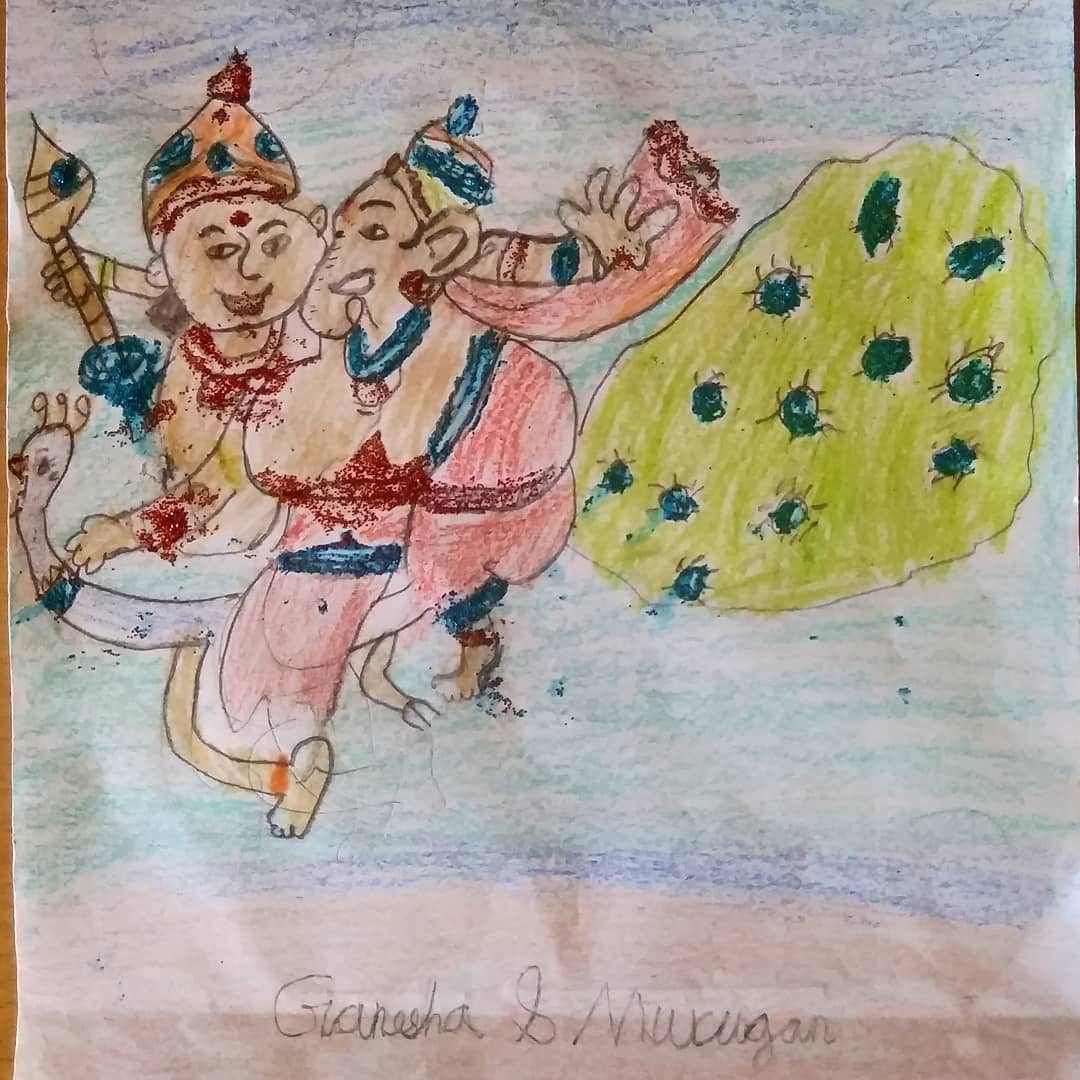 Ganesha & Murugan